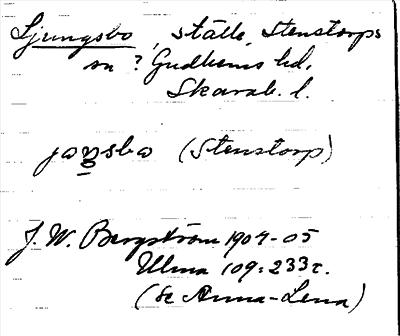 Ljungsbo, ställe, Stenstorps
sn? Gudhems hd,
Skarab. l.
joŋsbo (Stenstorp)
J. W. Bergström 1904-05
Ulma 109:233 c.
(Se Anna-Lena)